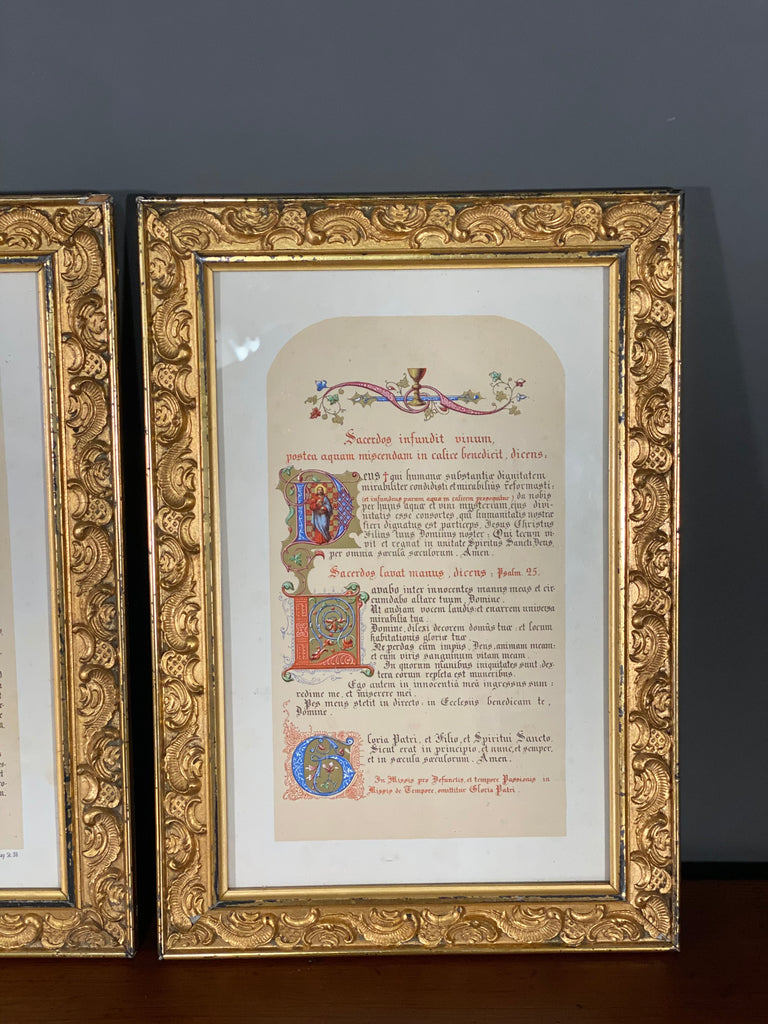 Sacerdos infundit vinum,
postea aquam miscendam in calice benedicit, dicens:
Deus † qui humanæ substantiæ dignitatem
mirabiliter condidisti, et mirabilius reformasti:
(et infundens parum aquæ in calicem prosequitur) da nobis
per hujus aquæ et vini mysterium, ejus divi-
nitatis esse consortes, qui humanitatis nostræ
fieri dignatus est particeps, Jesus Christus
Filius tuus Dominus noster: Qui tecum vi-
vit et regnat in unitate Spiritus Sancti Deus,
per omnia sæcula sæculorum. Amen.
Sacerdos lavat manus, dicens: Psalm. 25.
Lavabo inter innocentes manus meas et cir-
cumdabo altare tuum, Domine.
Ut audiam vocem laudis et enarrem universa
mirabilia tua.
Domine, dilexi decorem domûs tuæ et locum
habitationis gloriæ tuæ.
Ne perdas cum impiis, Deus, animam meam:
et cum viris sanguinum vitam meam.
In quorum manibus iniquitates sunt, dex-
tera eorum repleta est muneribus.
Ego autem in innocentiâ meâ ingressus sum:
redime me, et miserere mei.
Pes meus stetit in directo, in Ecclesiis benedicam te,
Domine.
Gloria Patri, et Filio, et Spiritui Sancto.
Sicut erat in principio, et nunc, et semper,
et in sæcula sæculorum. Amen.
In Missis pro Defunctis, et tempore Passionis in
Missis de Tempore, omittitur Gloria Patri.
St. 36